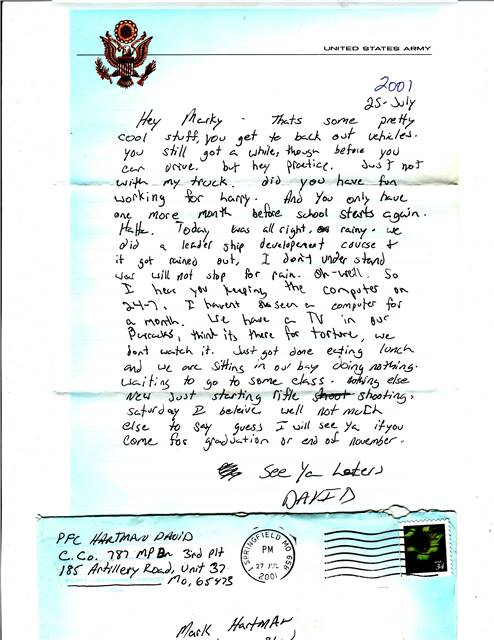 UNITED STATES ARMY
2001
25-July
Hey Marky - Thats some pretty
cool stuff, you get to back out vehicles.
you still got a while, though before you
can drive. but hey practice. Just not
with my truck. did you have fun
working for harry. And you only have
one more month before school starts again.
HaHa. Today was all right, rainy. we
did a leader ship developement course &
it got rained out, I don't under stand
war will not stop for rain. Oh-well. So
I hear you keeping the computer on
24-7. I havent seen a computer for
a month. We have a TV in our
Barracks, think its there for torture, we
dont watch it. Just got done eating lunch
and we are sitting in our bay doing nothing.
waiting to go to some class. nothing else
New Just starting rifle shoot shooting,
saturday I beleive well not much
else to say guess I will see ya if you
come for graduation or end of november.
See Ya Laters
DAVID
PFC HARTMAN DAVID
C. Co. 787 MP Bn 3rd Plt
185 Artillery Road, Unit 37
Mo, 65473
SPRINGFIELD MO 658
PM
27 JUL
2001
34
Mark Hartman